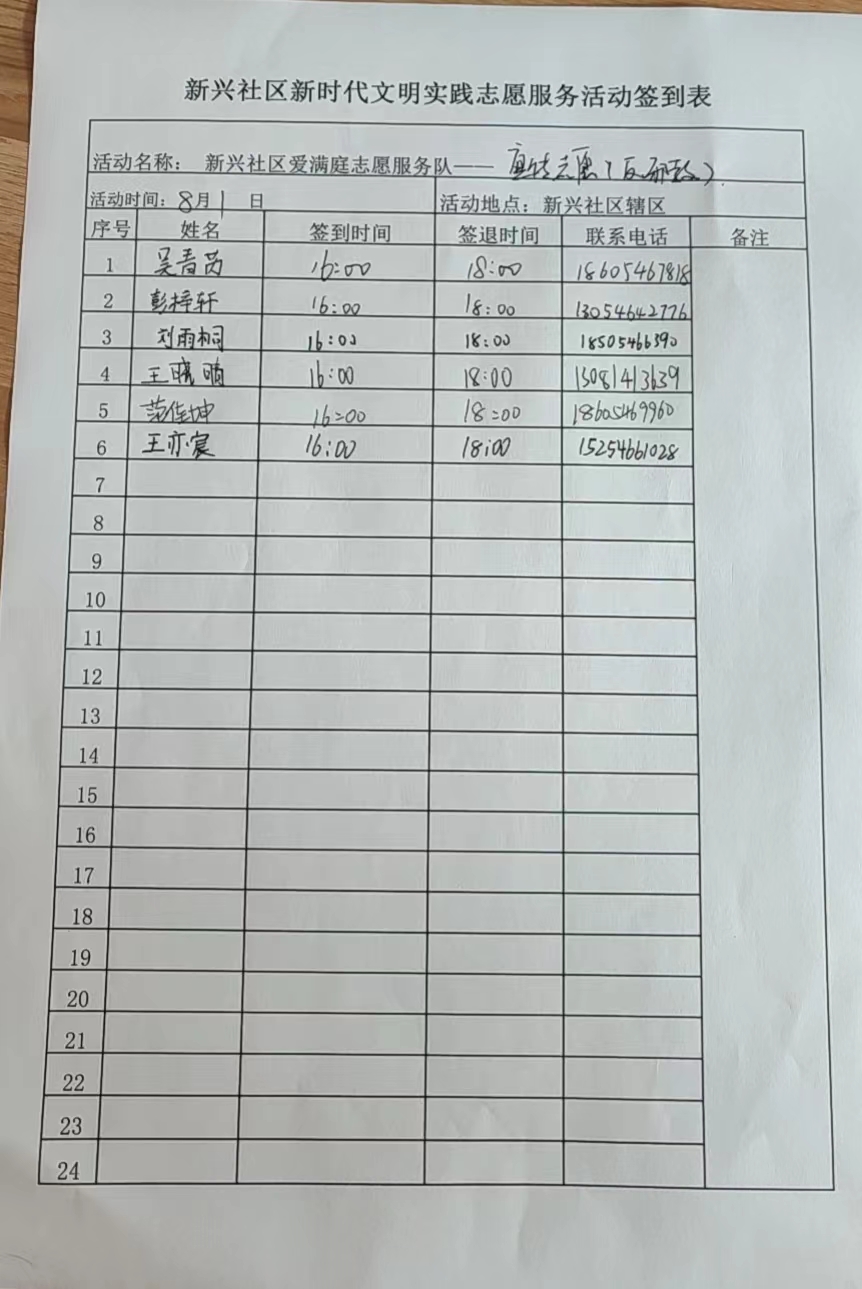 新兴社区新时代文明实践志愿服务活动签到表
活动名称： 新兴社区爱满庭志愿服务队——
活动时间：8月1日 活动地点：新兴社区辖区
序号 姓名 签到时间 签退时间 联系电话 备注
1 吴春芮 16:00 18:00 18605467818
2 彭梓轩 16:00 18:00 13054642776
3 刘雨桐 16:00 18:00 18505466390
4 王晓晴 16:00 18:00 13081413639
5 范佳坤 16:00 18:00 18605469960
6 王亦宸 16:00 18:00 15254661028
7
8
9
10
11
12
13
14
15
16
17
18
19
20
21
22
23
24